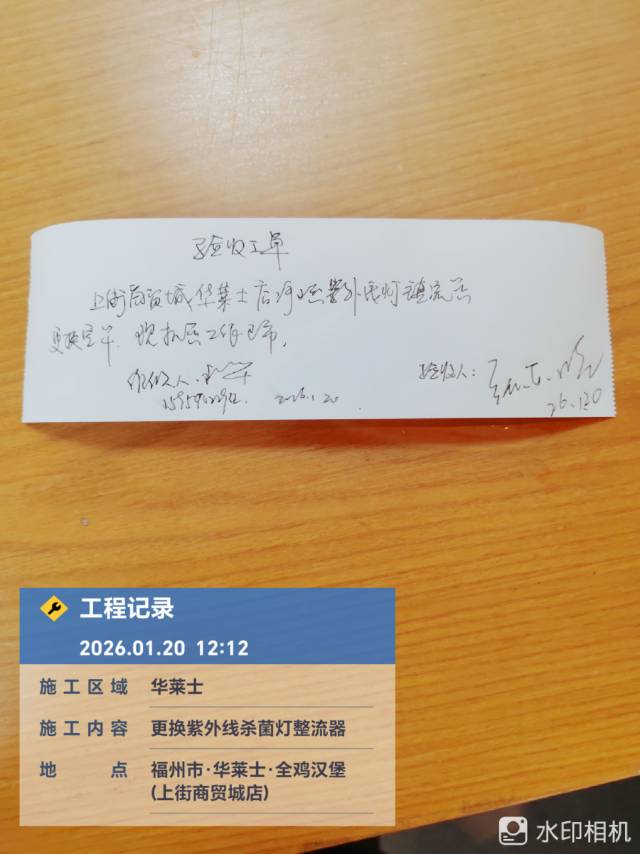 验收工单
上街商贸城华莱士后厨紫外线灯镇流器
更换完毕
维修人:
2026.1.20
验收人:
26.1.20
工程记录
2026.01.20 12:12
施工区域 华莱士
施工内容 更换紫外线杀菌灯整流器
地点 福州市·华莱士·全鸡汉堡
(上街商贸城店)
水印相机